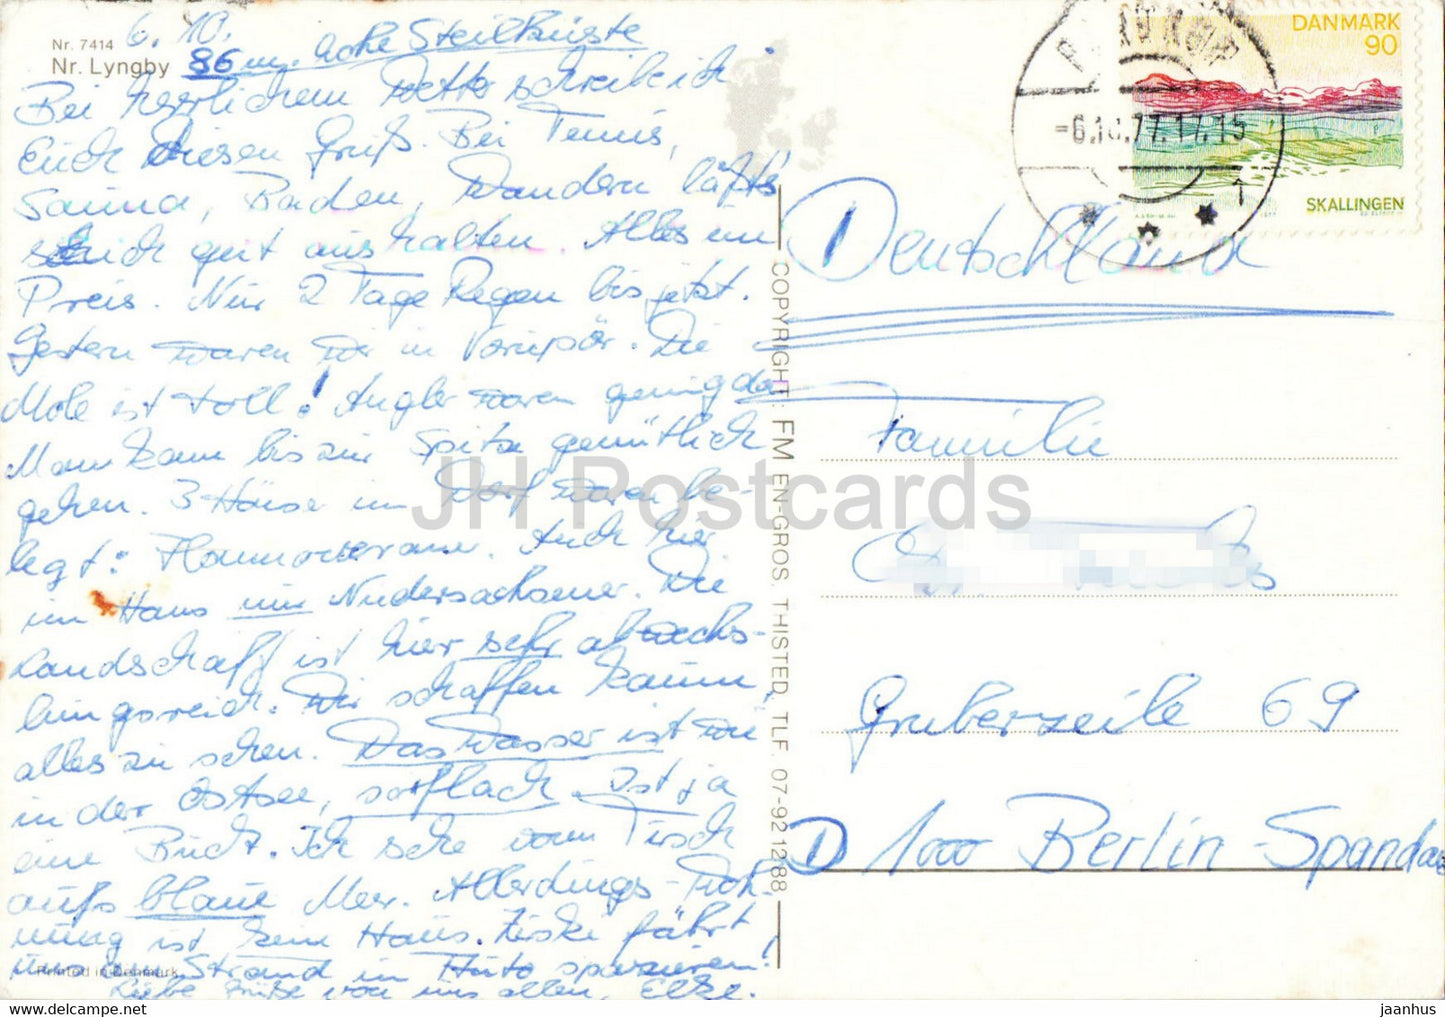 Nr. 7414
Nr. Lyngby
6. 10.
86 m hohe Steilküste
Bei herrlichem Wetter schreibe ich
Euch diesen Gruß. Bei Tennis,
Sauna, Baden, Wandern läßt's
sich gut aushalten. Alles im
Preis. Nur 2 Tage Regen bis jetzt.
Gestern waren wir in Vorupör. Die
Mole ist toll! Angler waren genug da
Man kann bis zur Spitze gemütlich
gehen. 3 Häuser im Dorf waren be-
legt: Hannoveraner. Auch hier
im Haus nur Niedersachsener. Die
Landschaft ist hier sehr abwechs-
lungsreich. Wir schaffen kaum,
alles zu sehen. Das Wasser ist wie
in der Ostsee, so flach. Ist ja
eine Bucht. Ich sehe vom Tisch
aufs blaue Meer. Allerdings Woh-
nung ist kein Haus. fährt
uns am Strand im Auto spazieren!
Liebe Grüße von uns allen, Else.
Printed in Denmark
COPYRIGHT: FM EN-GROS, THISTED, TLF. 07-921288
DANMARK
90
SKALLINGEN
-6.10.77.17.15
1
Deutschland
Familie
Gruberzeile 69
D 1000 Berlin-Spandau
JH Postcards
hippostcard.com/store/jhpostcards
jaanhus